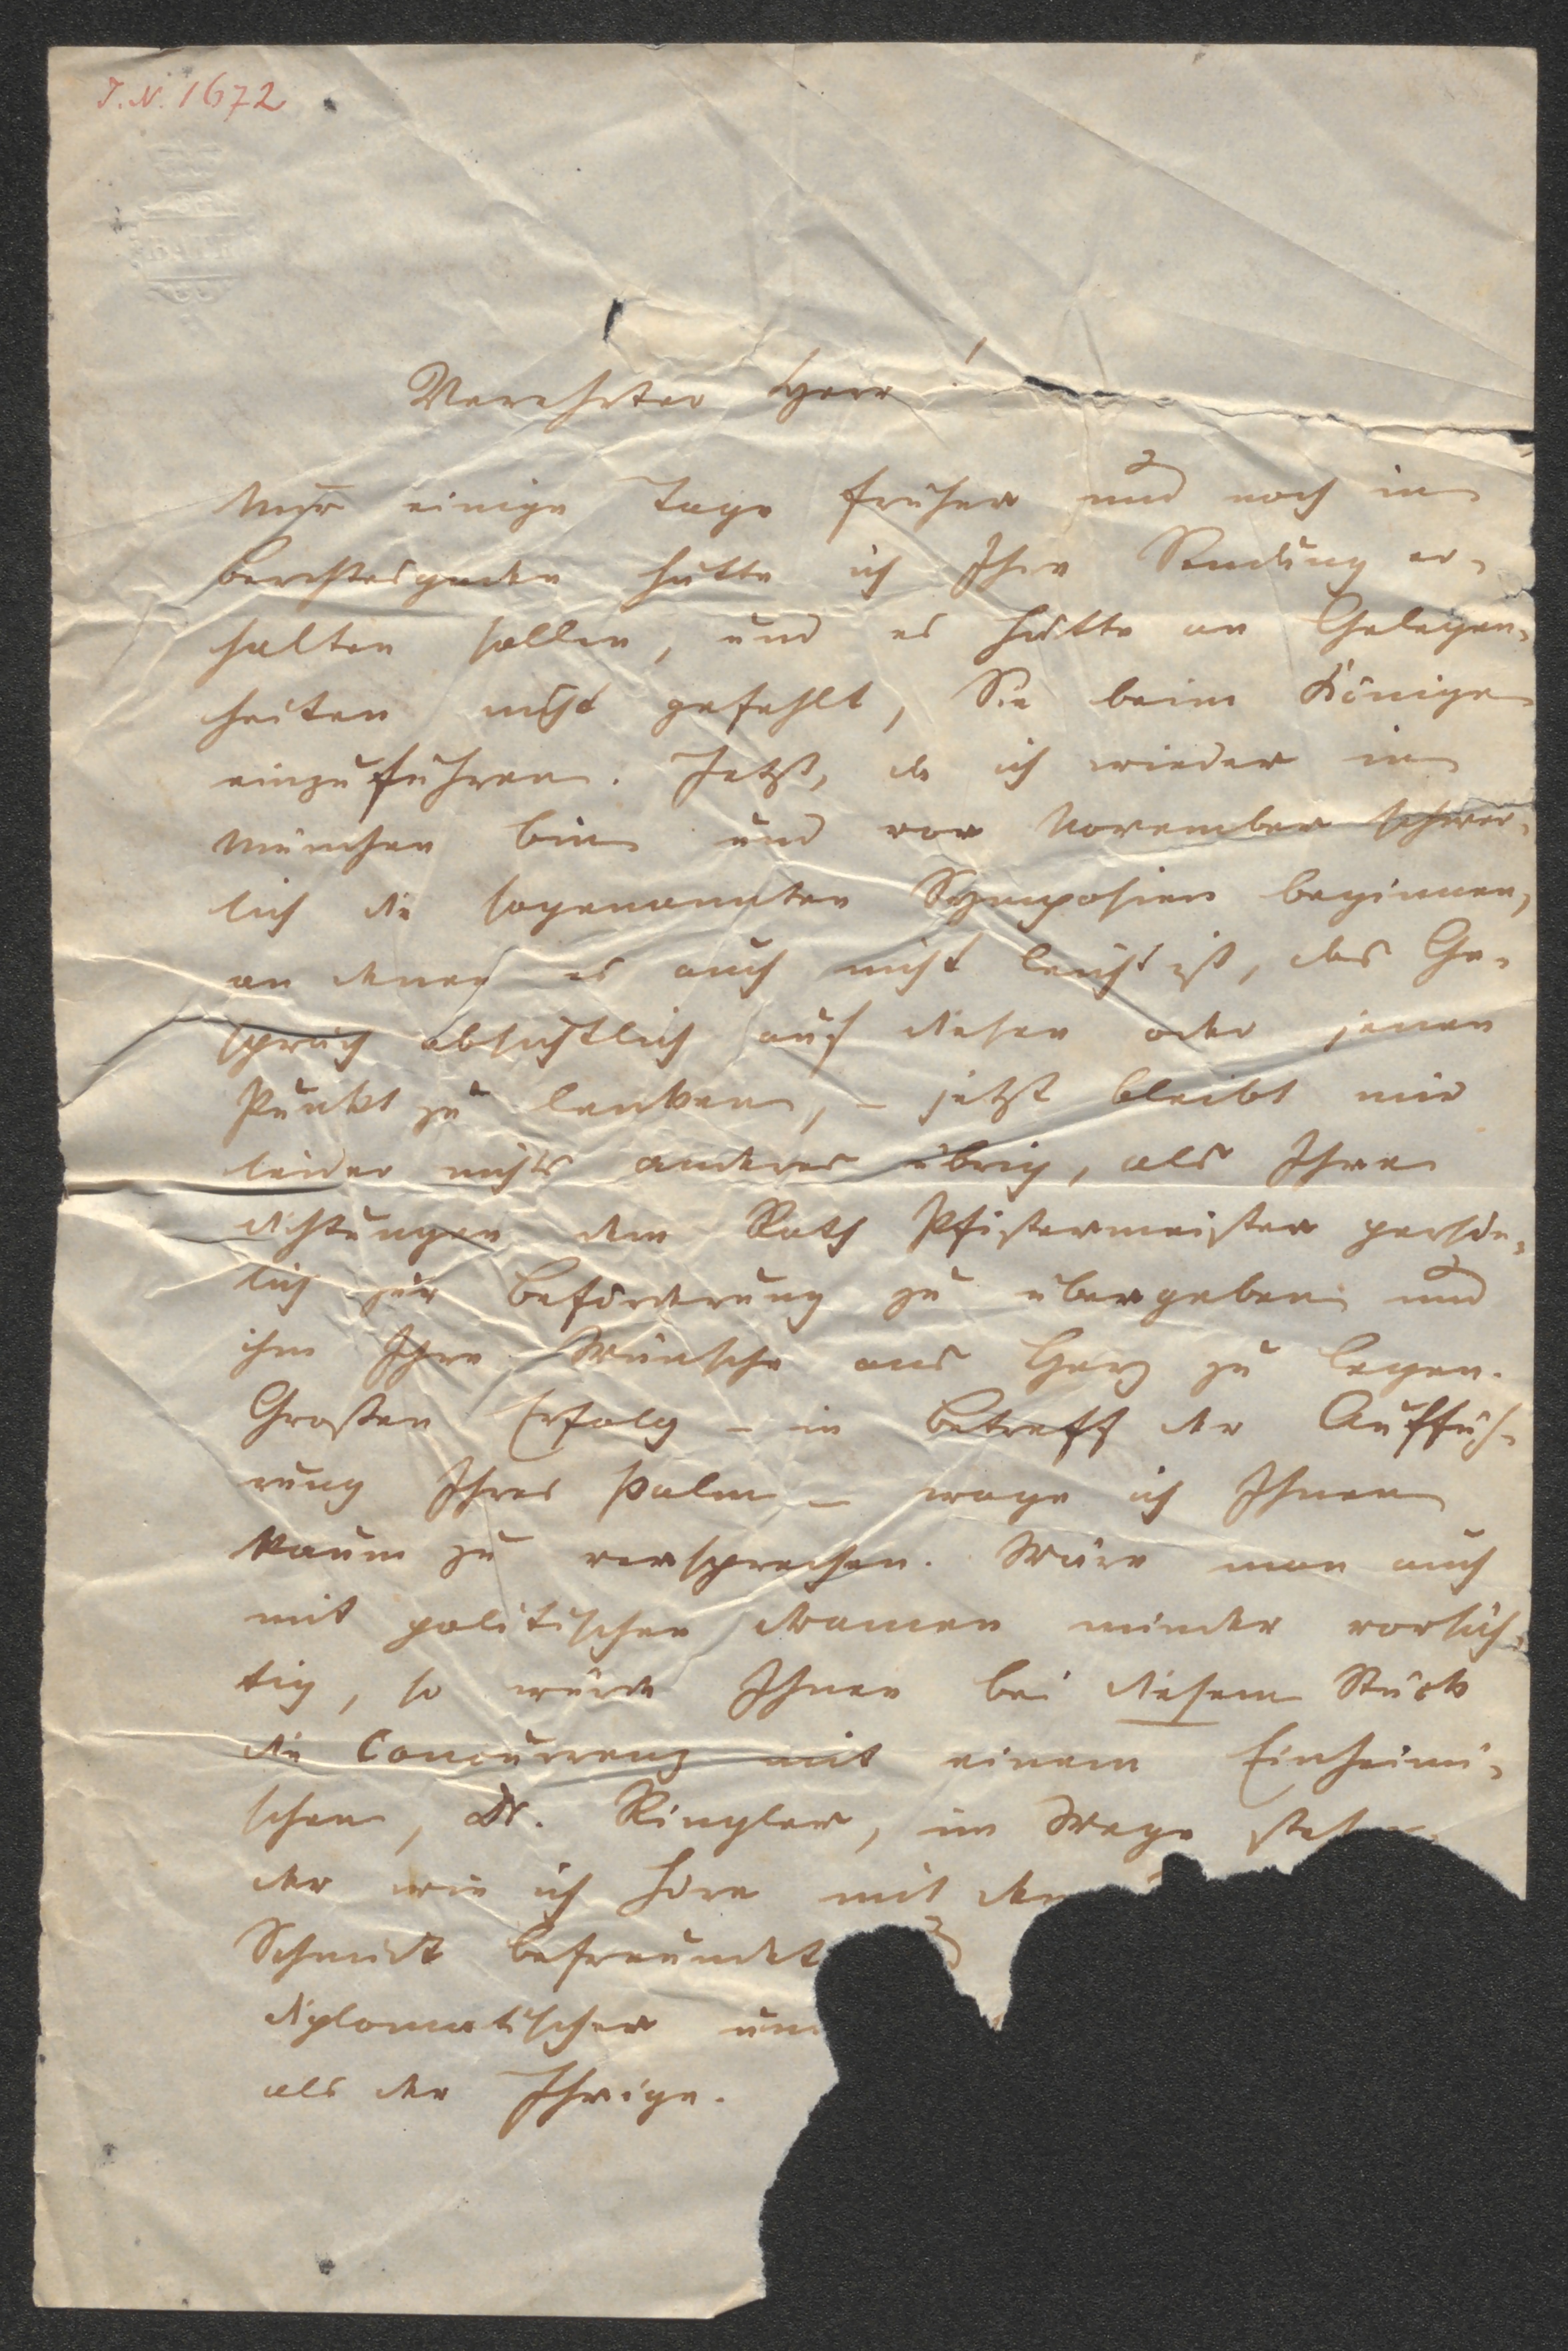 J. N. 1672
Verehrter Herr!
Nur einige Tage früher und noch in
Berchtesgaden hätte ich Ihre Sendung er-
halten sollen, und es hätte an Gelegen-
heiten nicht gefehlt, Sie beim Könige
einzuführen. Jetzt, da ich wieder in
München bin und vor November schwer-
lich die sogenannten Symposien beginnen,
an denen es auch nicht leicht ist, das Ge-
spräch absichtlich auf diesen oder jenen
Punkt zu lenken, – jetzt bleibt mir
leider nichts anderes übrig, als Ihre
Dichtungen dem Rath Pfistermeister persön-
lich zur Beförderung zu übergeben und
ihm Ihre Wünsche ans Herz zu legen.
Großen Erfolg – in Betreff der Auffüh-
rung Ihres Palm – wage ich Ihnen
kaum zu versprechen. Wäre man auch
mit politischen Dramen minder vorsich-
tig, so würde Ihnen bei diesem Stück
die Concurrenz mit einem Einheimi-
schen, Dr. Ringler, im Wege stehen,
der wie ich höre mit dem
Schmidt befreundet
diplomatischer
als der Ihrige.